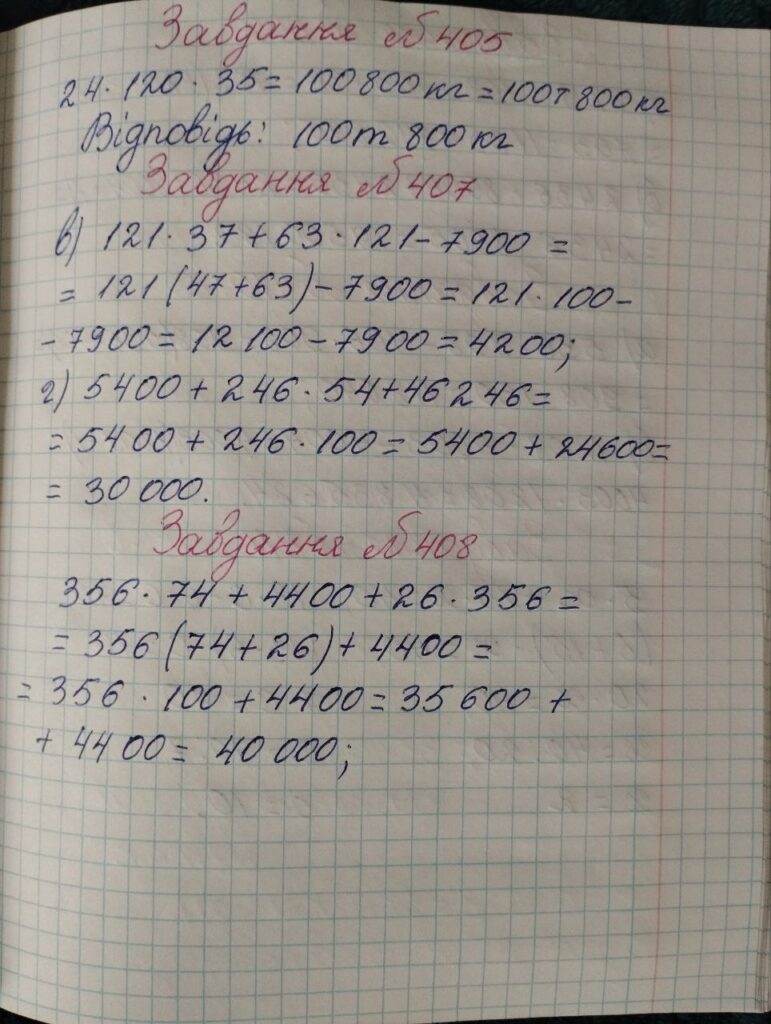 Завдання №405
24 · 120 · 35 = 100800 кг = 100т 800 кг
Відповідь: 100т 800 кг
Завдання №407
в) 121 · 37 + 63 · 121 - 7900 =
= 121 (47 + 63) - 7900 = 121 · 100 -
- 7900 = 12 100 - 7900 = 4200;
г) 5400 + 246 · 54 + 46 246 =
= 5400 + 246 · 100 = 5400 + 24600 =
= 30 000.
Завдання №408
356 · 74 + 4400 + 26 · 356 =
= 356 (74 + 26) + 4400 =
= 356 · 100 + 4400 = 35 600 +
+ 4400 = 40 000;